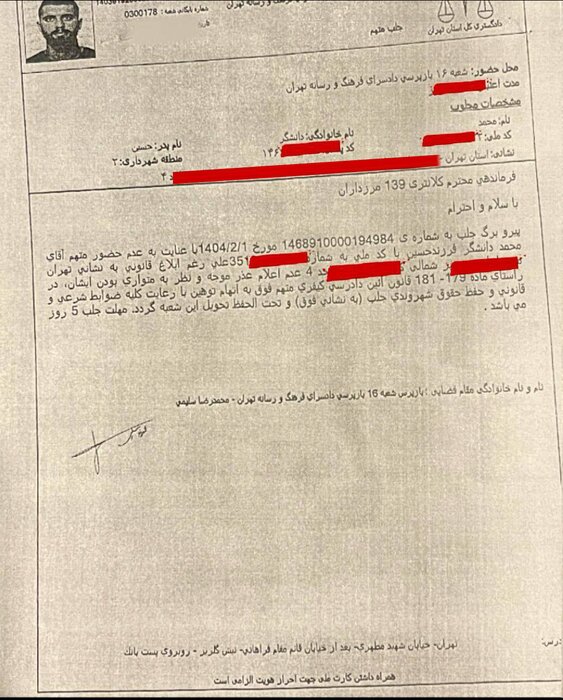 شماره بایگانی شعبه : 0300178
دادگستری کل استان تهران
جلب متهم
محل حضور: شعبه ۱۶ بازپرسی دادسرای فرهنگ و رسانه تهران
مشخصات مجلوب
نام: محمد نام خانوادگی: دانشگر نام پدر: حسین
کد ملی: منطقه شهرداری: ۲
نشانی: استان تهران -
فرماندهی محترم کلانتری 139 مرزداران
با سلام و احترام
پیرو برگ جلب به شماره ی 1468910000194984 مورخ 1404/2/1با عنایت به عدم حضور متهم آقای
محمد دانشگر فرزندحسین با کد ملی به شماره 351 علی رغم ابلاغ قانونی به نشانی تهران
شمالی 4 عدم اعلام عذر موجه و نظر به متواری بودن ایشان، در
راستای ماده 179- 181 قانون آئین دادرسی کیفری متهم فوق به اتهام توهین با رعایت کلیه ضوابط شرعی و
قانونی و حفظ حقوق شهروندی جلب (به نشانی فوق) و تحت الحفظ تحویل این شعبه گردد. مهلت جلب 5 روز
می باشد .
نام و نام خانوادگی مقام قضایی : بازپرس شعبه 16 بازپرسی دادسرای فرهنگ و رسانه تهران - محمدرضا سلیمی
تهران- خیابان شهید مطهری- بعد از خیابان قائم مقام فراهانی- نبش گلریز - روبروی پست بانک
همراه داشتن کارت ملی جهت احراز هویت الزامی است